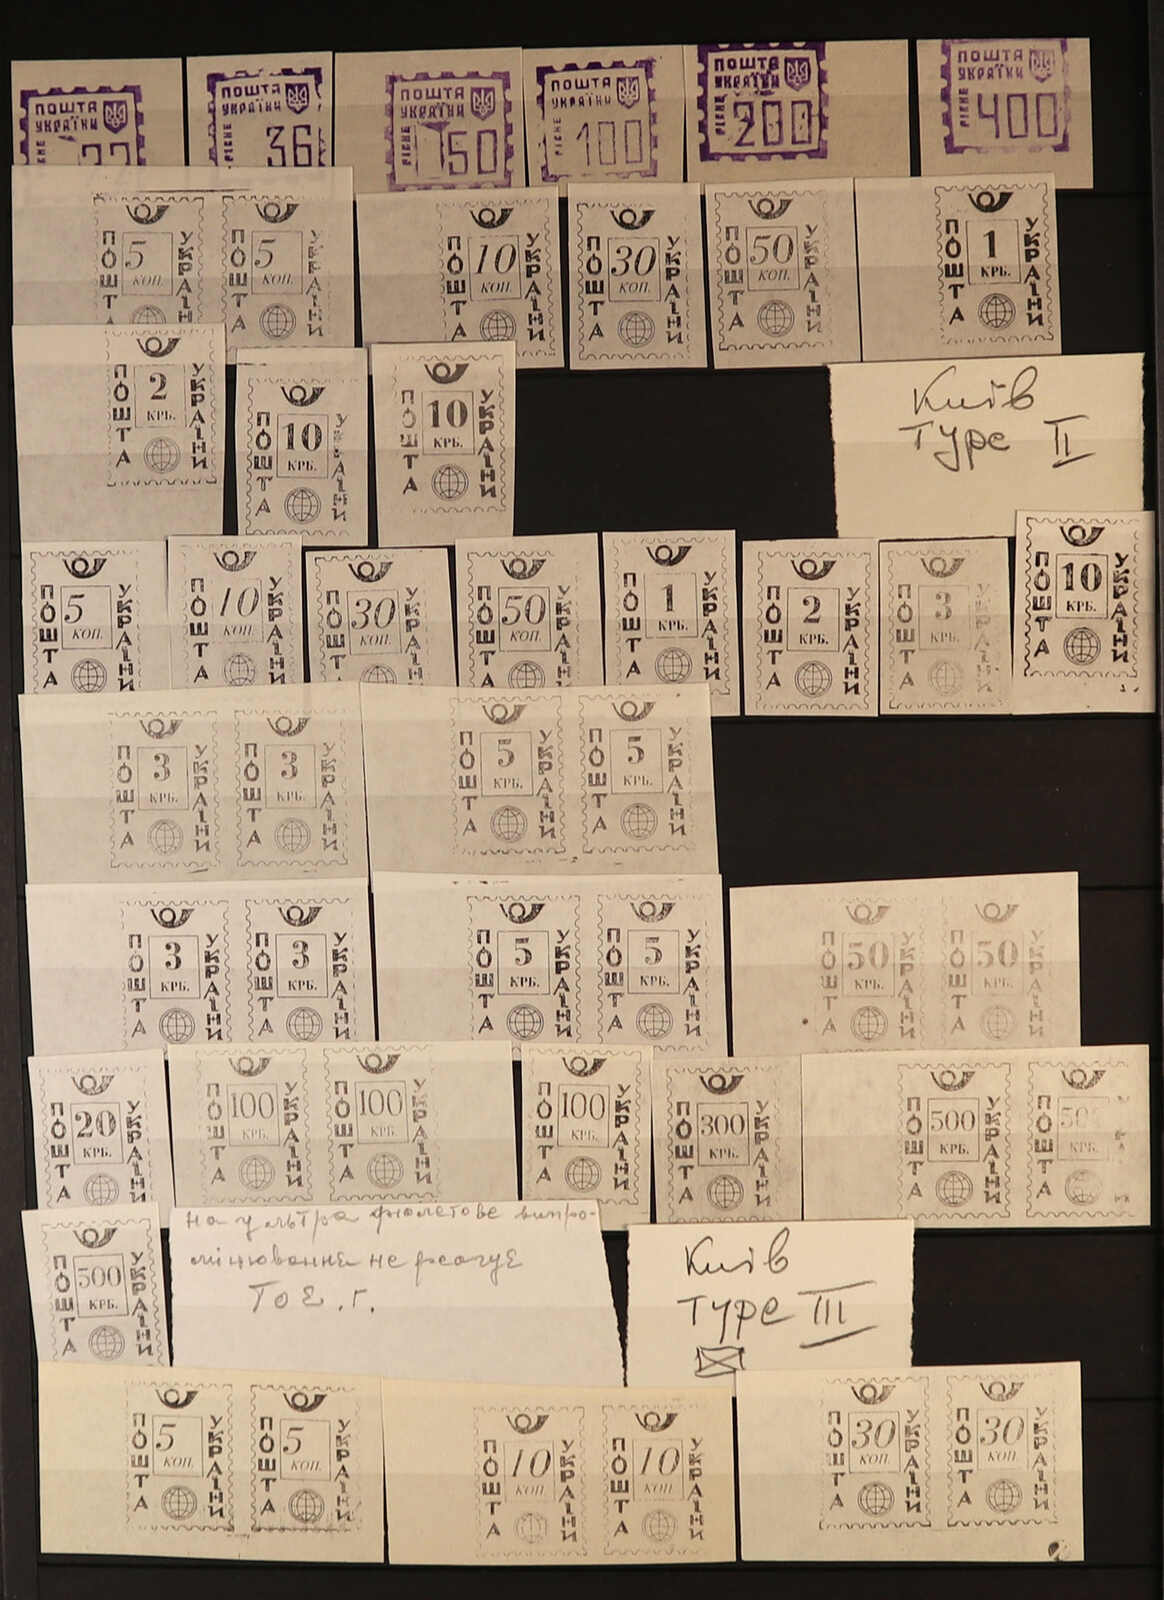 ПОШТА
УКРАЇНИ
РІВНЕ
ПОШТА
УКРАЇНИ
РІВНЕ
36
ПОШТА
УКРАЇНИ
РІВНЕ
150
ПОШТА
УКРАЇНИ
РІВНЕ
100
ПОШТА
УКРАЇНИ
РІВНЕ
200
ПОШТА
УКРАЇНИ
РІВНЕ
400
ПОШТА 5 КОП. УКРАІНИ
ПОШТА 5 КОП. УКРАІНИ
ПОШТА 10 КОП. УКРАІНИ
ПОШТА 30 КОП. УКРАІНИ
ПОШТА 50 КОП. УКРАІНИ
ПОШТА 1 КРБ. УКРАІНИ
ПОШТА 2 КРБ. УКРАІНИ
ПОШТА 10 КРБ. УКРАІНИ
ПОШТА 10 КРБ. УКРАІНИ
Київ
Type II
ПОШТА 5 КОП. УКРАІНИ
ПОШТА 10 КОП. УКРАІНИ
ПОШТА 30 КОП. УКРАІНИ
ПОШТА 50 КОП. УКРАІНИ
ПОШТА 1 КРБ. УКРАІНИ
ПОШТА 2 КРБ. УКРАІНИ
ПОШТА 3 КРБ. УКРАІНИ
ПОШТА 10 КРБ. УКРАІНИ
ПОШТА 3 КРБ. УКРАІНИ
ПОШТА 3 КРБ. УКРАІНИ
ПОШТА 5 КРБ. УКРАІНИ
ПОШТА 5 КРБ. УКРАІНИ
ПОШТА 3 КРБ. УКРАІНИ
ПОШТА 3 КРБ. УКРАІНИ
ПОШТА 5 КРБ. УКРАІНИ
ПОШТА 5 КРБ. УКРАІНИ
ПОШТА 50 КРБ. УКРАІНИ
ПОШТА 50 КРБ. УКРАІНИ
ПОШТА 20 КРБ. УКРАІНИ
ПОШТА 100 КРБ. УКРАІНИ
ПОШТА 100 КРБ. УКРАІНИ
ПОШТА 100 КРБ. УКРАІНИ
ПОШТА 300 КРБ. УКРАІНИ
ПОШТА 500 КРБ. УКРАІНИ
ПОШТА КРБ.
ПОШТА 500 КРБ. УКРАІНИ
на ультра фіолетове випро-
мінювання не реагує
Київ
Type III
ПОШТА 5 КОП. УКРАІНИ
ПОШТА 5 КОП. УКРАІНИ
ПОШТА 10 КОП. УКРАІНИ
ПОШТА 10 КОП. УКРАІНИ
ПОШТА 30 КОП. УКРАІНИ
ПОШТА 30 КОП. УКРАІНИ